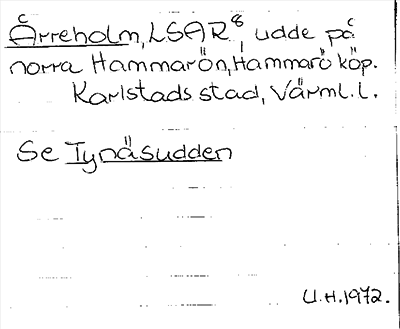 Årreholm, LSAR⁸, udde på
norra Hammarön, Hammarö köp.
Karlstads stad, Värml. l.
Se Tynäsudden
U.H. 1972.